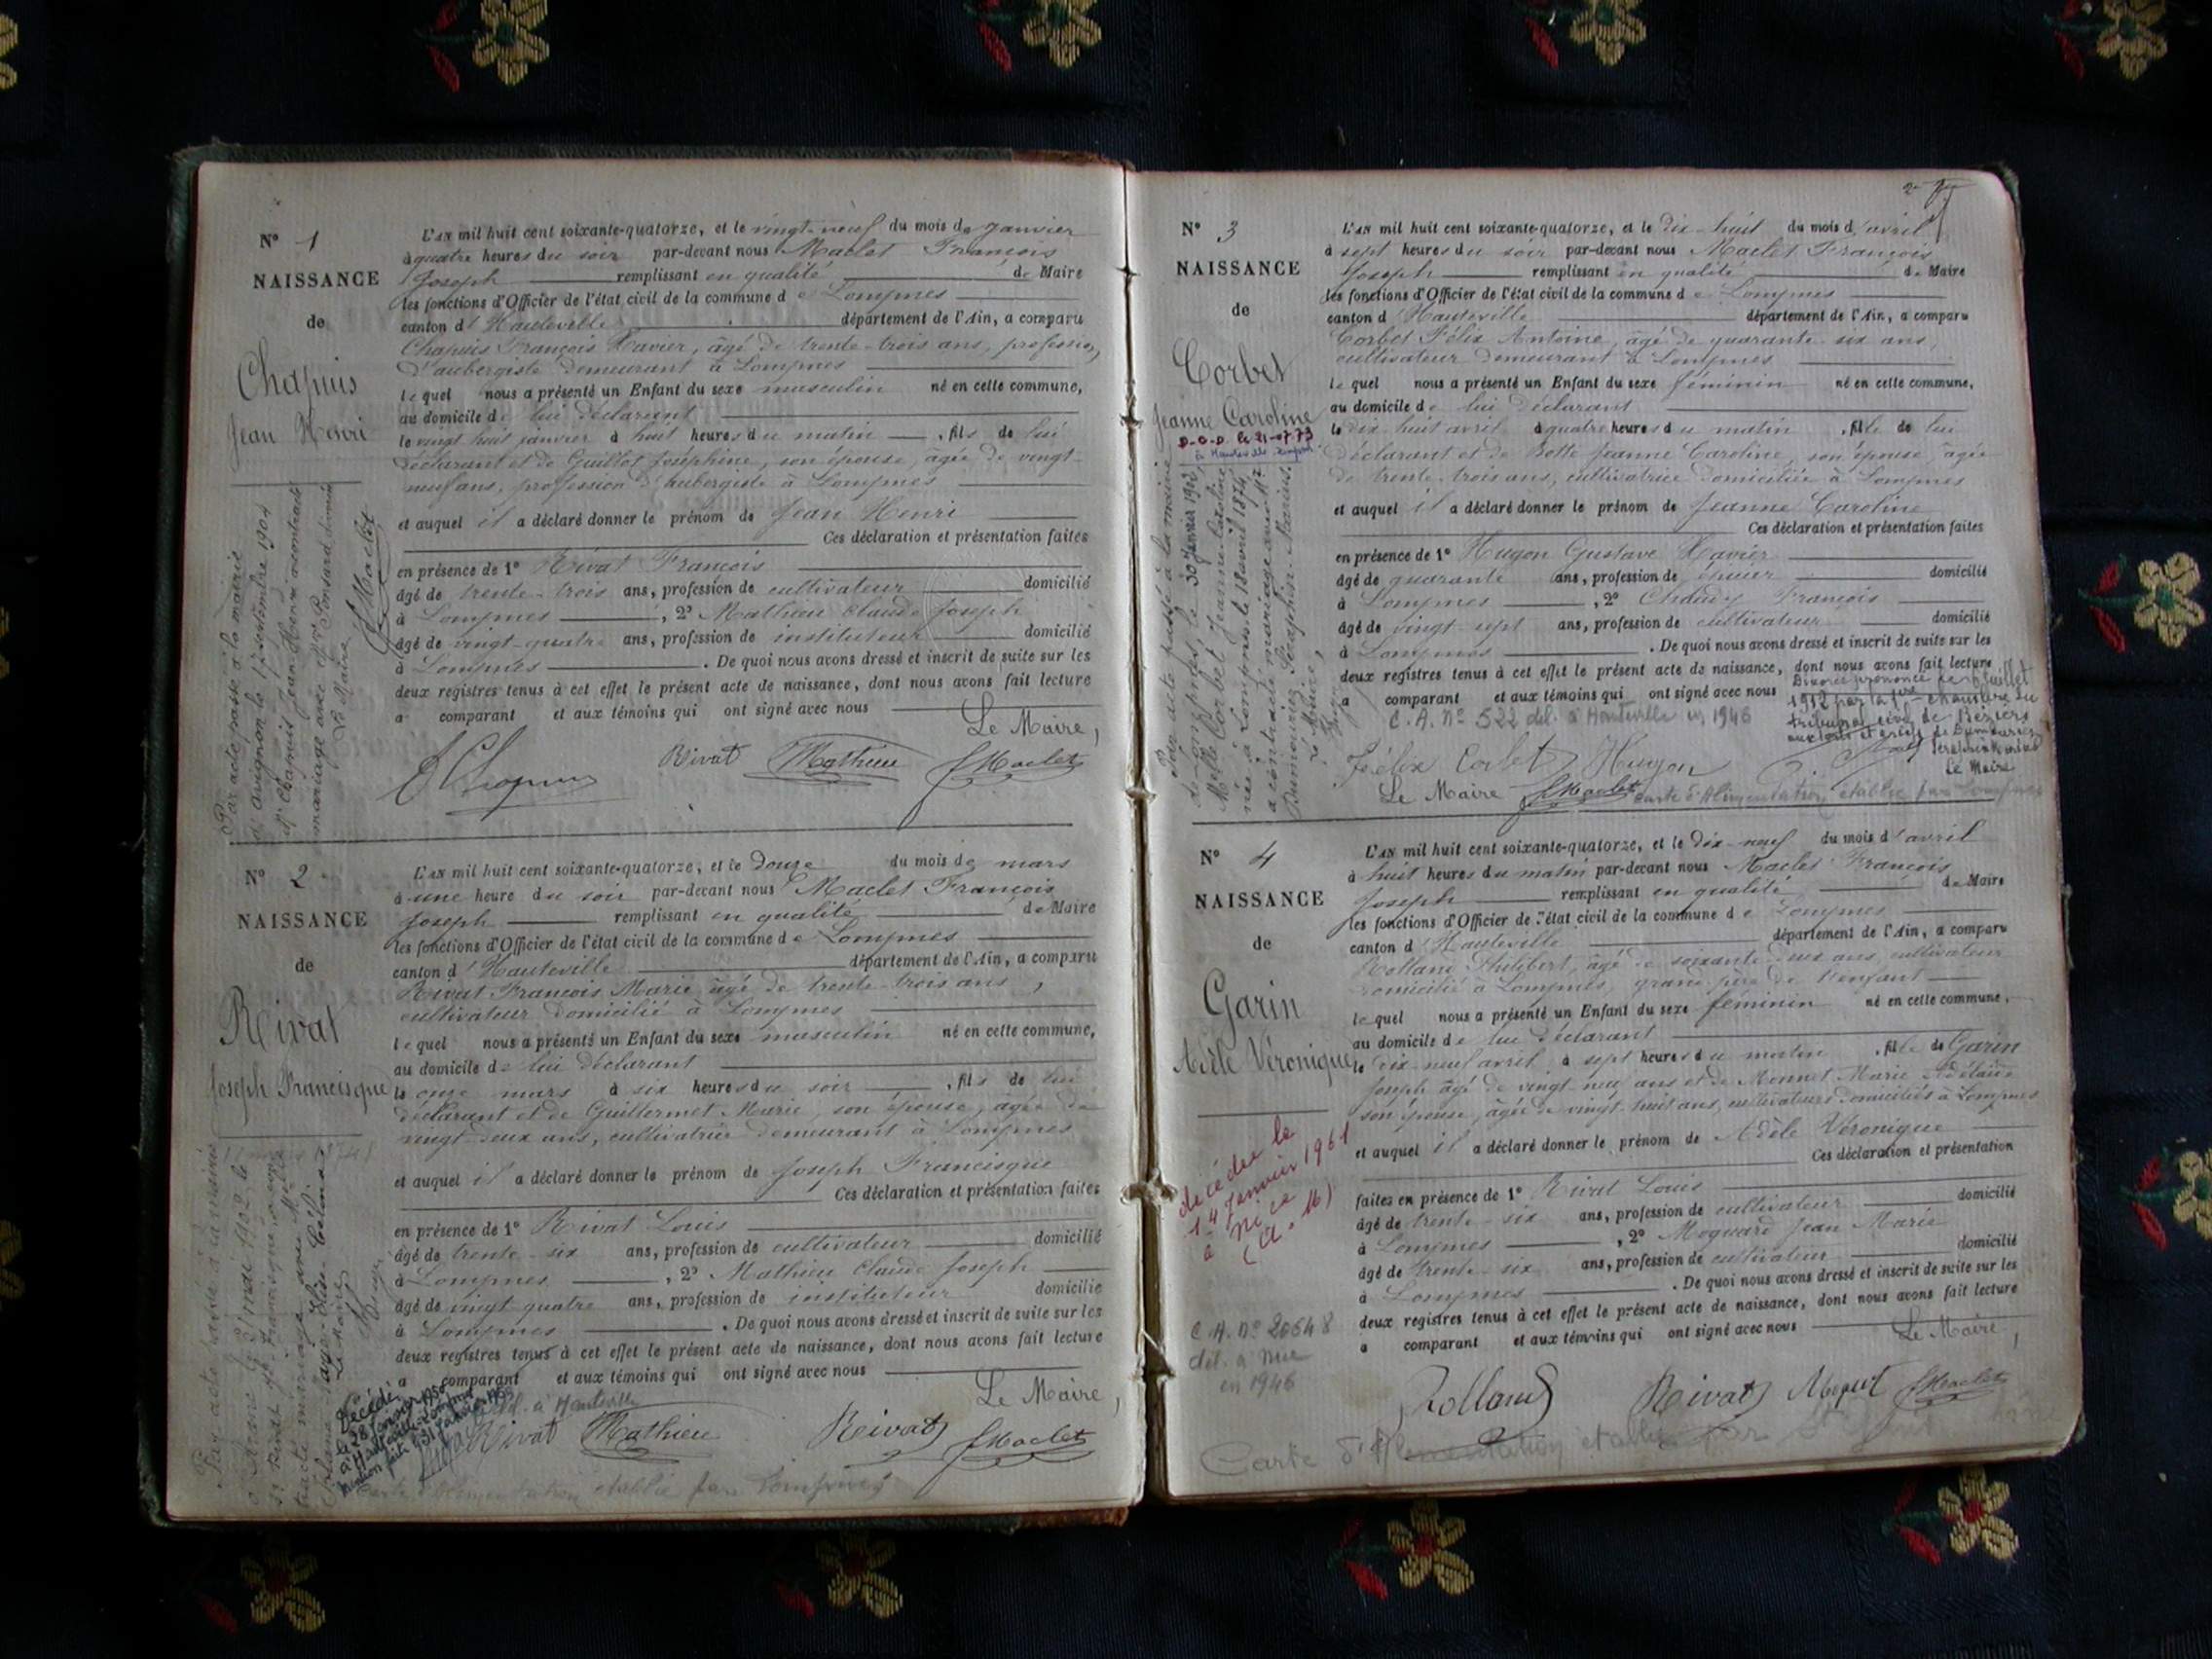 N° 1
NAISSANCE
de
Chapuis
Jean Henri
L'AN mil huit cent soixante-quatorze, et le vingt-neuf du mois de janvier
à quatre heures du soir par-devant nous Maclet François
Joseph remplissant en qualité de Maire
les fonctions d'Officier de l'état civil de la commune de Lompnes
canton d'Hauteville département de l'Ain, a comparu
Chapuis François Xavier, âgé de trente-trois ans, profession
d'aubergiste demeurant à Lompnes
lequel nous a présenté un Enfant du sexe masculin né en cette commune,
au domicile de lui déclarant
le vingt huit janvier à huit heures du matin, fils de lui
déclarant et de Guillot Joséphine, son épouse, âgée de vingt-
neuf ans, profession d'aubergiste à Lompnes
et auquel il a déclaré donner le prénom de Jean Henri
Ces déclaration et présentation faites
en présence de 1° Rivat François
âgé de trente-trois ans, profession de cultivateur domicilié
à Lompnes, 2° Mathieu Claude Joseph
âgé de vingt-quatre ans, profession de instituteur domicilié
à Lompnes. De quoi nous avons dressé et inscrit de suite sur les
deux registres tenus à cet effet le présent acte de naissance, dont nous avons fait lecture
a comparant et aux témoins qui ont signé avec nous
Le Maire,
Rivat Mathieu JMaclet
Par acte passé à la mairie
d'Avignon le 17 septembre 1904
Mr Chapuis Jean Henri a contracté
mariage avec
Le Maire
JMaclet
N° 2
NAISSANCE
de
Rivat
Joseph Francisque
L'AN mil huit cent soixante-quatorze, et le douze du mois de mars
à une heure du soir par-devant nous Maclet François
Joseph remplissant en qualité de Maire
les fonctions d'Officier de l'état civil de la commune de Lompnes
canton d'Hauteville département de l'Ain, a comparu
Rivat François Marie âgé de trente-trois ans,
cultivateur domicilié à Lompnes
lequel nous a présenté un Enfant du sexe masculin né en cette commune,
au domicile de lui déclarant
le onze mars à six heures du soir, fils de lui
déclarant et de Guillermet Marie, son épouse, âgée de
vingt deux ans, cultivatrice demeurant à Lompnes
et auquel il a déclaré donner le prénom de Joseph Francisque
Ces déclaration et présentation faites
en présence de 1° Rivat Louis
âgé de trente-six ans, profession de cultivateur domicilié
à Lompnes, 2° Mathieu Claude Joseph
âgé de vingt quatre ans, profession de instituteur domicilié
à Lompnes. De quoi nous avons dressé et inscrit de suite sur les
deux registres tenus à cet effet le présent acte de naissance, dont nous avons fait lecture
a comparant et aux témoins qui ont signé avec nous
Le Maire,
Rivat Mathieu Rivat JMaclet
Par acte passé à la mairie
mai 1902 le
Le Maire
Décédé
le 28 janvier 1950
à Hauteville-Lompnes
Mention faite le 31 janvier 1950
à Hauteville
Carte d'Alimentation établie par Lompnes
N° 3
NAISSANCE
de
Corbet
Jeanne Caroline
L'AN mil huit cent soixante-quatorze, et le dix-huit du mois d'avril
à sept heures du soir par-devant nous Maclet François
Joseph remplissant en qualité de Maire
les fonctions d'Officier de l'état civil de la commune de Lompnes
canton d'Hauteville département de l'Ain, a comparu
Corbet Félix Antoine, âgé de quarante-six ans,
cultivateur demeurant à Lompnes
lequel nous a présenté un Enfant du sexe féminin né en cette commune,
au domicile de lui déclarant
le dix huit avril à quatre heures du matin, fille de lui
déclarant et de Botte Jeanne Caroline, son épouse, âgée
de trente-trois ans, cultivatrice domiciliée à Lompnes
et auquel il a déclaré donner le prénom de Jeanne Caroline
Ces déclaration et présentation faites
en présence de 1° Hugon Gustave Xavier
âgé de quarante ans, profession de épicier domicilié
à Lompnes, 2° Chaudy François
âgé de vingt-sept ans, profession de cultivateur domicilié
à Lompnes. De quoi nous avons dressé et inscrit de suite sur les
deux registres tenus à cet effet le présent acte de naissance, dont nous avons fait lecture
a comparant et aux témoins qui ont signé avec nous
C.A. N° 522 dél. à Hauteville en 1946
Divorce prononcé juillet
1912 par la 1ère chambre du
tribunal civil de Béziers
aux torts et griefs de Dumouriez
Séraphin Marius
Le Maire
Félix Corbet Hugon
Le Maire JMaclet
Carte d'Alimentation établie par Lompnes
Par acte passé à la mairie
le 30 Janvier 1902,
Melle Corbet Jeanne-Caroline
née à Lompnes le 18 avril 1874,
a contracté mariage avec Mr
Dumouriez Séraphin-Marius.
Le Maire,
N° 4
NAISSANCE
de
Garin
Adèle Véronique
L'AN mil huit cent soixante-quatorze, et le dix-neuf du mois d'avril
à huit heures du matin par-devant nous Maclet François
Joseph remplissant en qualité de Maire
les fonctions d'Officier de l'état civil de la commune de Lompnes
canton d'Hauteville département de l'Ain, a comparu
Rolland Philibert, âgé de soixante-six ans, cultivateur
domicilié à Lompnes, grand père de l'enfant
lequel nous a présenté un Enfant du sexe féminin né en cette commune,
au domicile de lui déclarant
le dix neuf avril à sept heures du matin, fille de Garin
Joseph âgé de vingt neuf ans et de Monnet Marie Adélaïde
son épouse, âgée de vingt huit ans, cultivateurs domiciliés à Lompnes
et auquel il a déclaré donner le prénom de Adèle Véronique
Ces déclaration et présentation
faites en présence de 1° Rivat Louis
âgé de trente-six ans, profession de cultivateur domicilié
à Lompnes, 2° Moquard Jean Marie
âgé de trente-six ans, profession de cultivateur domicilié
à Lompnes. De quoi nous avons dressé et inscrit de suite sur les
deux registres tenus à cet effet le présent acte de naissance, dont nous avons fait lecture
a comparant et aux témoins qui ont signé avec nous
Le Maire,
Rolland Rivat JMaclet
décédée le
14 Janvier 1961
à Nice
C.A. N° 20648
dél. à Nice
en 1946
Carte d'Alimentation établie par